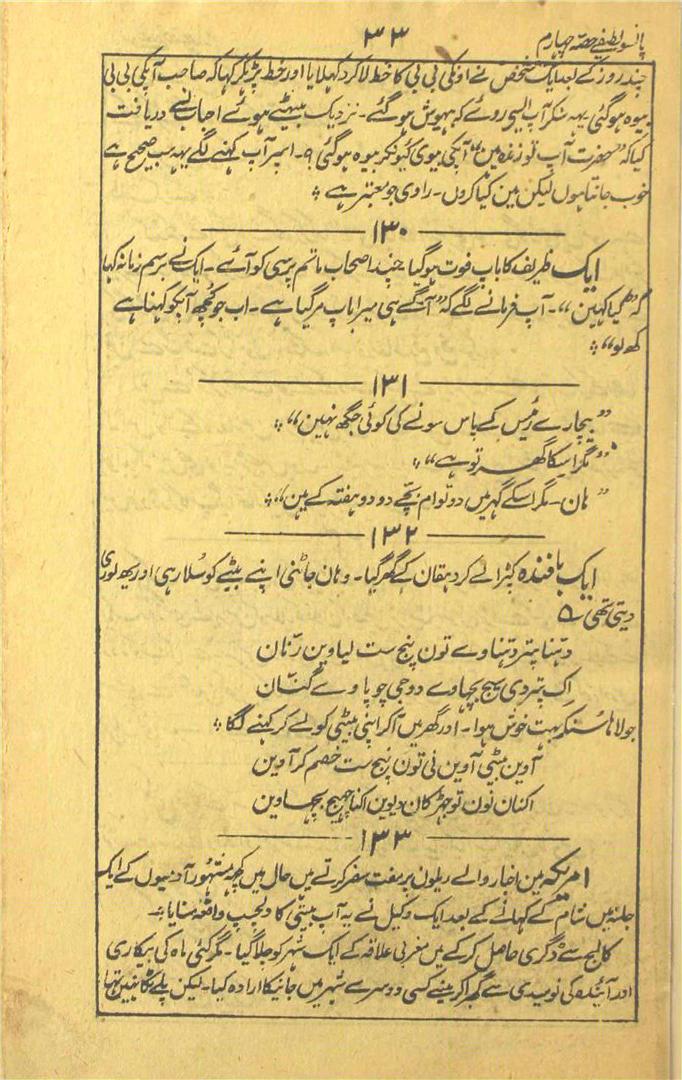 پانسو لطیفے حصہ چہارم
۳۳
چند روز کے بعد ایک شخص نے اونکی بی بی کا خط لا کر دکہلایا اور خط پڑہکر کہا کہ صاحب آپکی بی بی
بیوہ ہوگئی یہہ سنکر آپ ایسے روئے کہ بیہوش ہوگئے۔ نزدیک بیٹہے ہوئے احباب نے دریافت
کیا کہ "حضرت آپ تو زندہ ہین" آپکی بیوی کیونکر بیوہ ہوگئی ؟۔ اسپر آپ کہنے لگے یہہ سب صحیح ہے
خوب جانتا ہوں لیکن مین کیا کروں۔ راوی جو معتبر ہے ؞
۱۳۰
ایک ظریف کا باپ فوت ہوگیا چند اصحاب ماتم پرسی کو آئے۔ ایک نے برسم زمانہ کہا
کہ "کیا کہین"۔ آپ فرمانے لگے کہ "آگے ہی میرا باپ مرگیا ہے۔ اب جو کچھ آپکو کہنا ہے
کھ لو" ؞
۱۳۱
"بیچارے رئیس کے پاس سونے کی کوئی جگھ نہین" ؞
"مگر اسکا گھر تو ہے" ؞
"ہان۔ مگر اسکے گہر میں دو توام بچے دو دو ہفتہ کے ہین" ؞
۱۳۲
ایک بافندہ کپڑا لے کر دہقان کے گھر گیا۔ وہان جاٹنی اپنے بیٹے کو سلا رہی اور یھ لوری
دیتی تھی ؎
دہنا پتر دہناوے تون پنج ست لیاوین رنّان
اِک پتر دی سیج بچہاوے دوجی چوپاوے گنّان
جولاہا سُنکر بہت خوش ہوا۔ اور گھر میں آکر اپنی بیٹی کو لے کر کہنے لگا ؞
آوین بیٹی آوین نی تون پنج ست خصم کر آوین
اکنان نون تو جہڑکان دیوین اکنا چہیج بچہاوین
۱۳۳
امریکہ مین اخبار والے ریلون پر مفت سفر کرتے ہیں حال میں کچھ مشہور آدمیوں کے ایک
جلسہ میں شام کے کہانے کے بعد ایک وکیل نے یہ آپ بیتی کا دلچسپ واقعہ سنایا:۔
کالج سے ڈگری حاصل کرکے میں مغربی علاقہ کے ایک شہر کو چلا گیا۔ مگر کئی ماہ کی بیکاری
اور آئندہ کی نومیدی سے گہبرا کر مینے کسی دوسرے شہر میں جانیکا ارادہ کیا۔ لیکن پلے ٹکا نہیں تہا